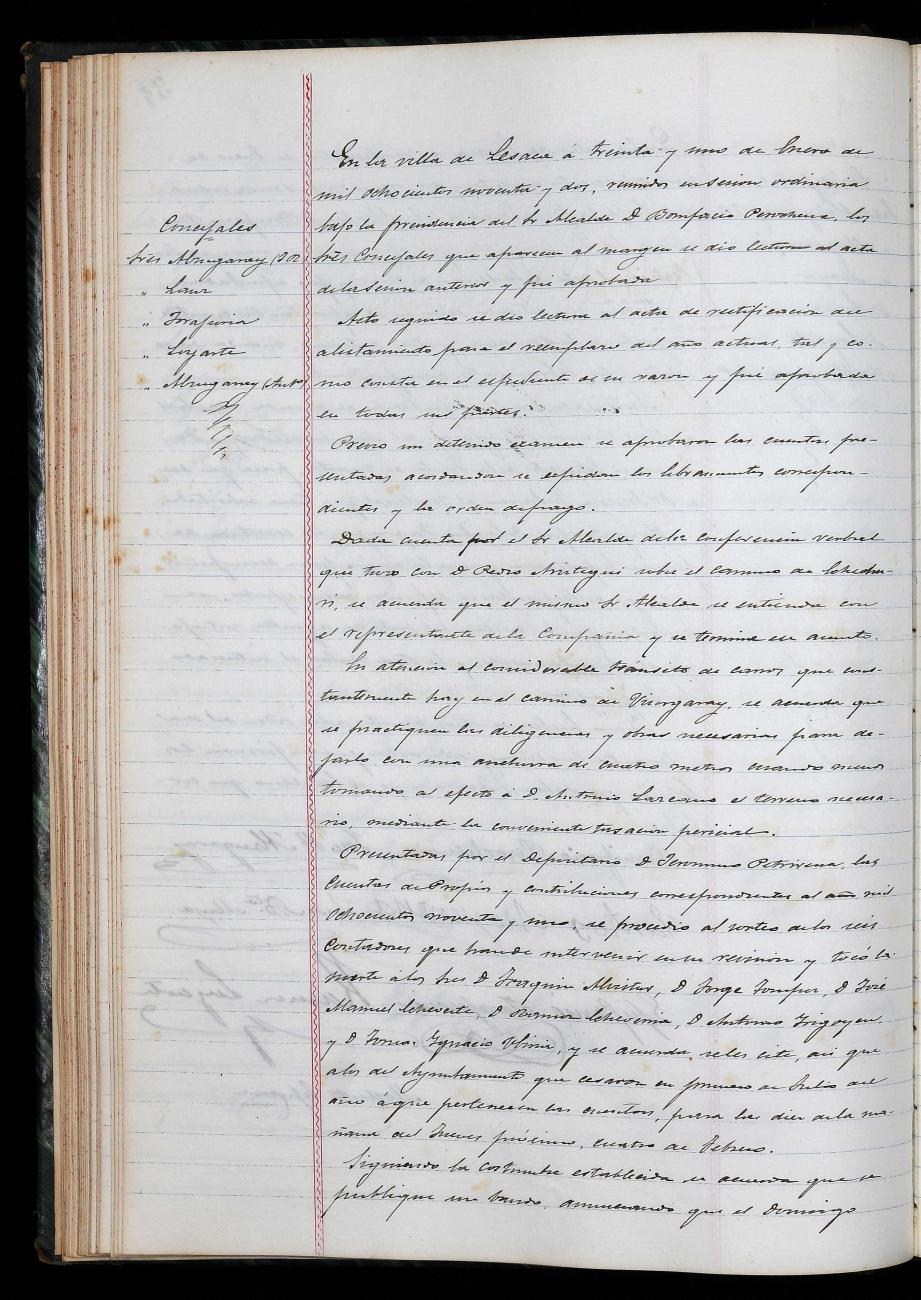 Concejales
Sres Almugaray (J
"
"
" Loyarte
" Almugaray (Anto)
En la villa de Lesaca á treinta y uno de Enero de
mil ochocientos noventa y dos, reunidos en sesion ordinaria
bajo la presidencia del Sr Alcalde D Bonifacio Perochena, los
tres Concejales que aparecen al margen se dio lectura al acta
de la sesion anterior y fué aprobada
Acto seguido se dio lectura al acta de rectificacion del
alistamiento para el reemplazo del año actual, tal y co-
mo consta en el espediente de su razon y fué aprobada
en todas sus partes.
Previo un detenido examen se aprobaron las cuentas pre-
sentadas acordandose se espidan los libramientos correspon-
dientes y la orden de pago.
Dada cuenta por el Sr Alcalde de la conferencia verbal
que tuvo con D Pedro sobre el camino de
ri, se acuerda que el mismo Sr Alcalde se entienda con
el representante de la Compañia y se termine ese asunto.
En atencion al considerable tránsito de carros que cons-
tantemente hay en el camino de se acuerda que
se practiquen las diligencias y obras necesarias para de-
jarlo con una anchura de cuatro metros cuando menos
tomando al efecto á D. Antonio Lazcano el terreno necesa-
rio, mediante la conveniente tasacion pericial.
Presentadas por el Depositario D Jeronimo Petrirena, las
Cuentas de Propios y contribuciones correspondientes al año mil
ochocientos noventa y uno, se procedio al sorteo de los seis
Contadores que han de intervenir en su reunion y tocó la
suerte á los Sres D Joaquin D Jorge D José
Manuel Echeverte, D Ramon Echeverria, D Antonio Irigoyen
y D Tomas Ignacio y se acuerda se les cite, asi que
á los del Ayuntamiento que cesaron en primero de Julio del
año á que pertenecen las cuentas, para las diez de la ma-
ñana del Jueves próximo, cuatro de Febrero.
Siguiendo la costumbre establecida se acuerda que se
publique un bando anunciando que el Domingo